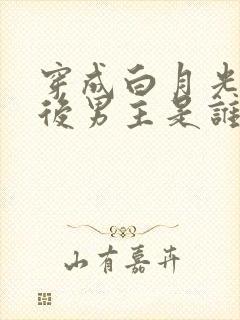 穿成白月光
後男主是誰
山有嘉卉